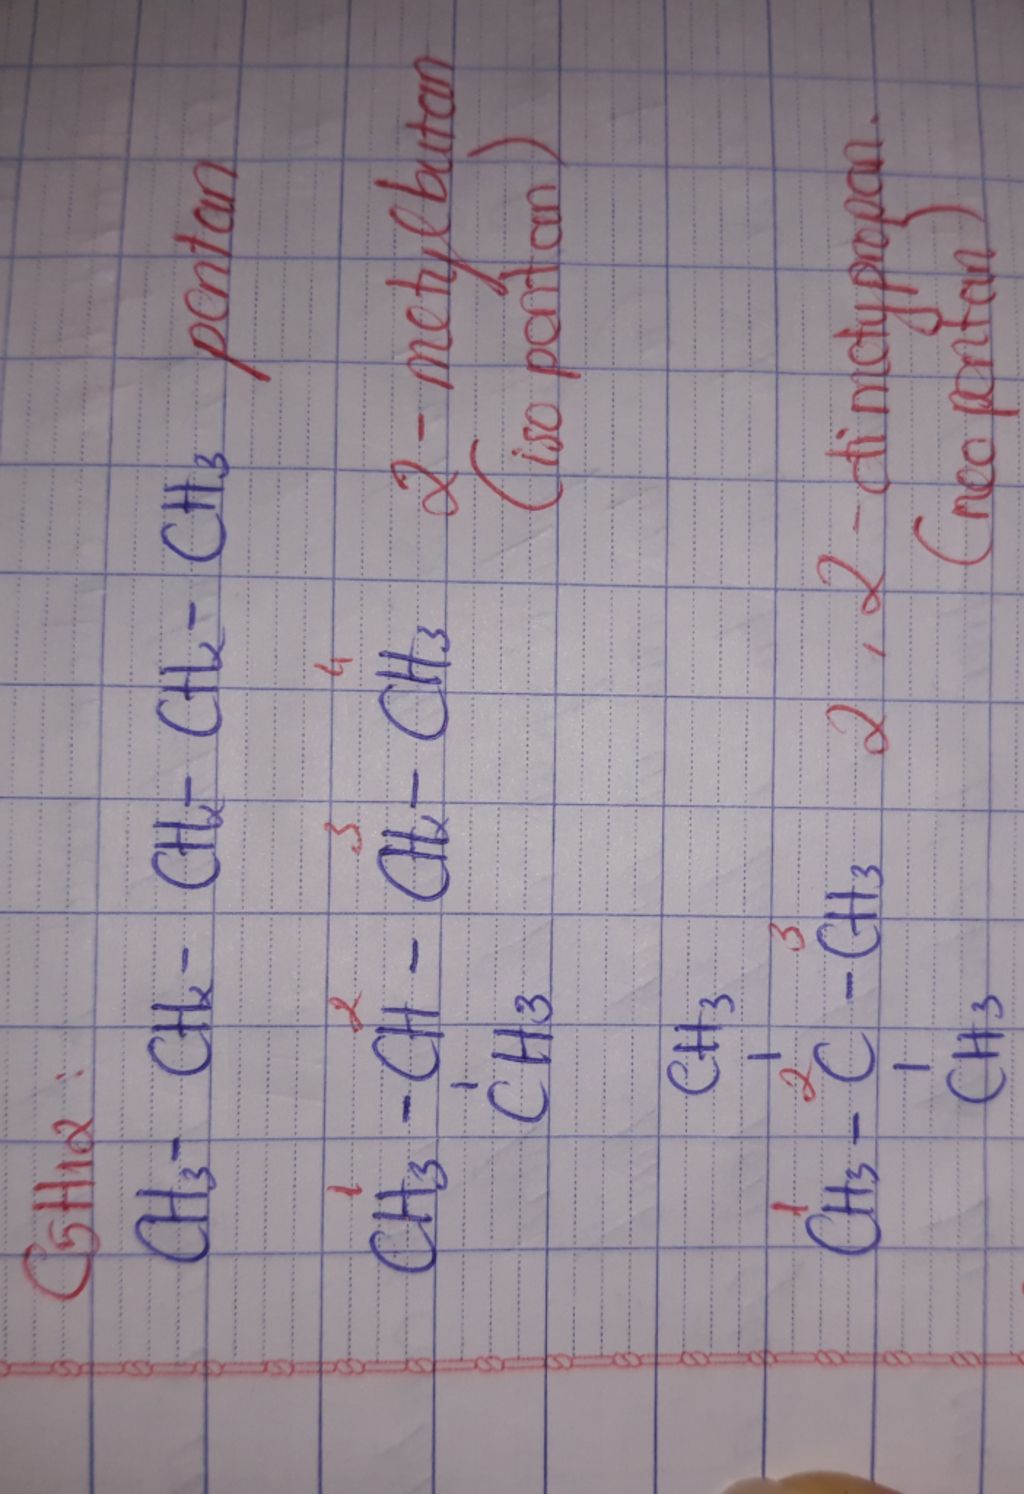 C5H12:
CH3 - CH2 - CH2 - CH2 - CH3 pentan
1 2 3 4
CH3 - CH - CH2 - CH3 2 - metylbutan
CH3 (iso pentan)
CH3
1 2 3
CH3 - C - CH3 2,2 - dimetypropan.
CH3 (neo pentan)